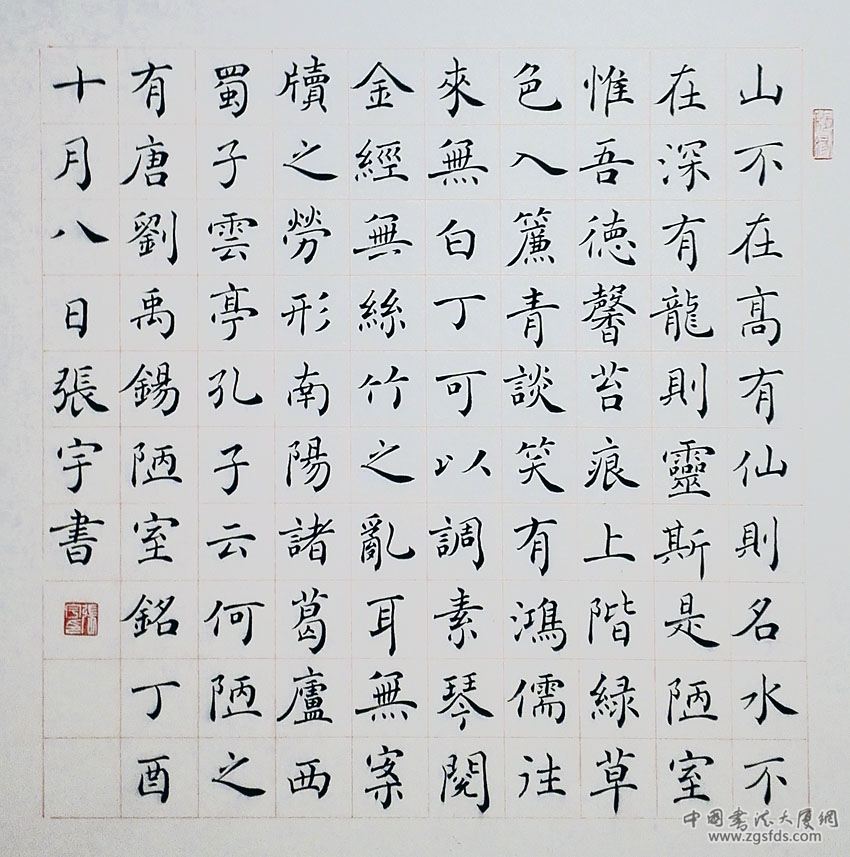 山不在高有仙則名水不
在深有龍則靈斯是陋室
惟吾德馨苔痕上階緑草
色入簾青談笑有鴻儒往
來無白丁可以調素琴閱
金經無絲竹之亂耳無案
牘之勞形南陽諸葛廬西
蜀子雲亭孔子云何陋之
有唐劉禹錫陋室銘丁酉
十月八日張宇書
中國書法大廈網
www.zgsfds.com